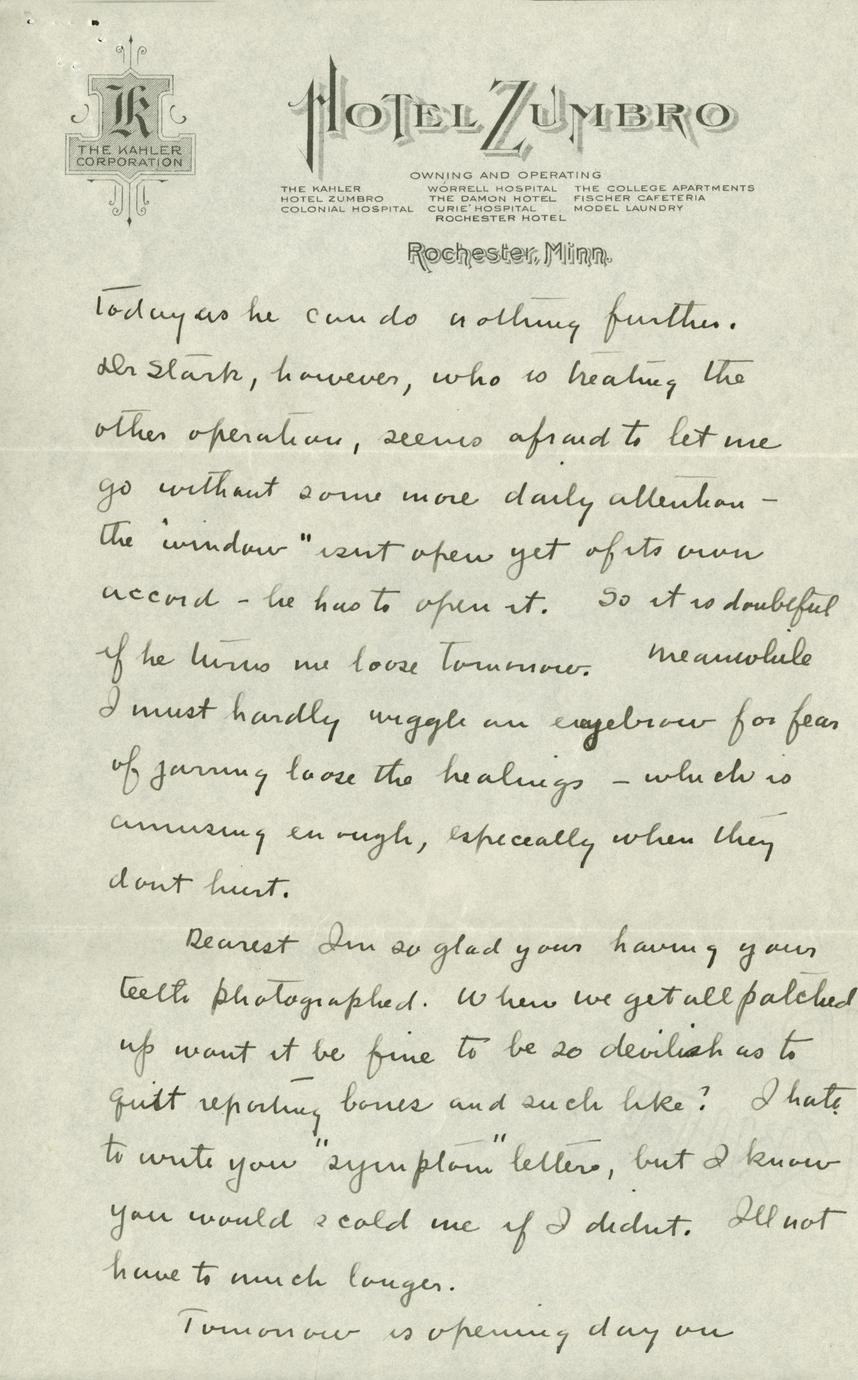 K
THE KAHLER
CORPORATION
HOTEL ZUMBRO
OWNING AND OPERATING
THE KAHLER WORRELL HOSPITAL THE COLLEGE APARTMENTS
HOTEL ZUMBRO THE DAMON HOTEL FISCHER CAFETERIA
COLONIAL HOSPITAL CURIE HOSPITAL MODEL LAUNDRY
ROCHESTER HOTEL
Rochester, Minn.
today as he can do nothing further.
Dr Stark, however, who is treating the
other operation, seems afraid to let me
go without some more daily attention –
the "window" isnt open yet of its own
accord – he has to open it. So it is doubtful
if he turns me loose tomorrow. Meanwhile
I must hardly wiggle an eyebrow for fear
of jarring loose the healings – which is
amusing enough, especially when they
dont hurt.
Dearest Im so glad your having your
teeth photographed. When we get all patched
up wont it be fine to be so devilish as to
quit reporting bones and such like? I hate
to write you "symptom" letters, but I know
you would scold me if I didnt. Ill not
have to much longer.
Tomorrow is opening day on